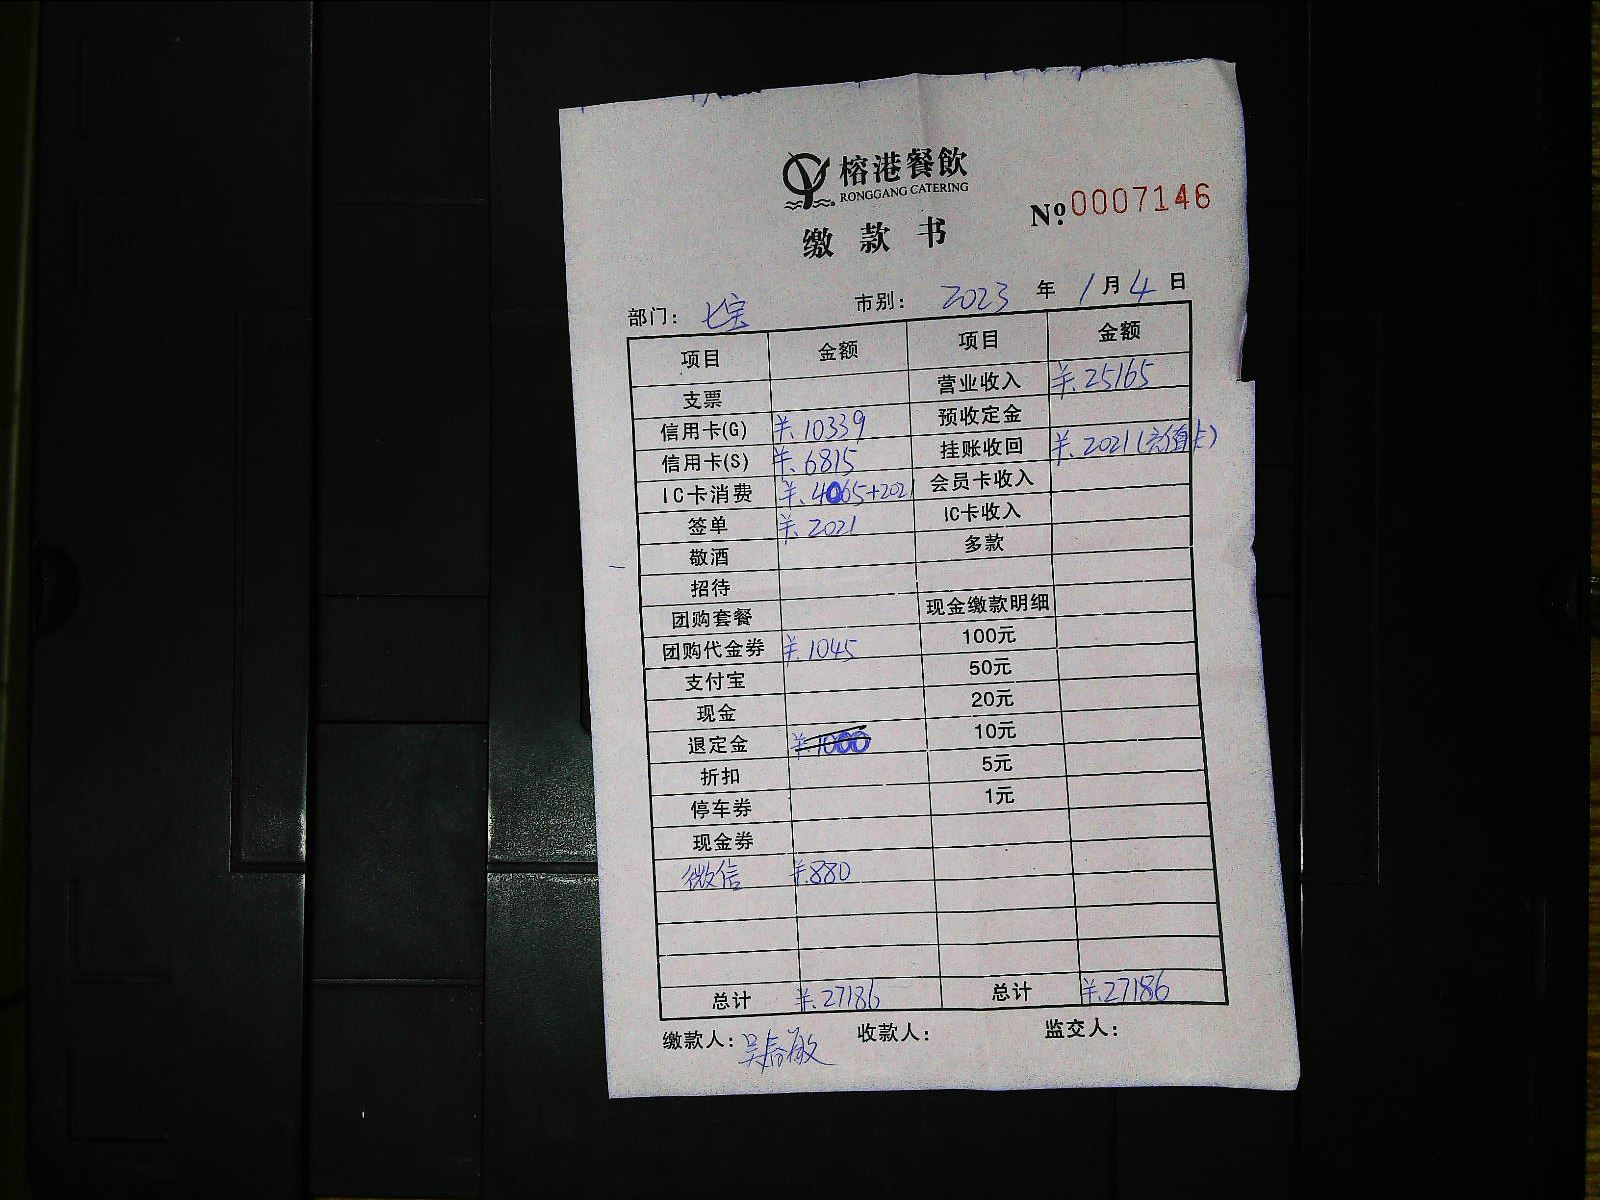 榕港餐飲
RONGGANG CATERING
№ 0007146
缴款书
部门: 七宝 市别: 2023年1月4日
项目 金额 项目 金额
支票 营业收入 ¥.25165
信用卡(G) ¥.10339 预收定金
信用卡(S) ¥.6815 挂账收回 ¥.2021(充值卡)
IC卡消费 ¥.4065+2021 会员卡收入
签单 ¥.2021 IC卡收入
敬酒 多款
招待
团购套餐 现金缴款明细
团购代金券 ¥.1045 100元
支付宝 50元
现金 20元
退定金 ¥.1000 10元
折扣 5元
停车券 1元
现金券
微信 ¥.880
总计 ¥.27186 总计 ¥.27186
缴款人: 吴春敏 收款人: 监交人: